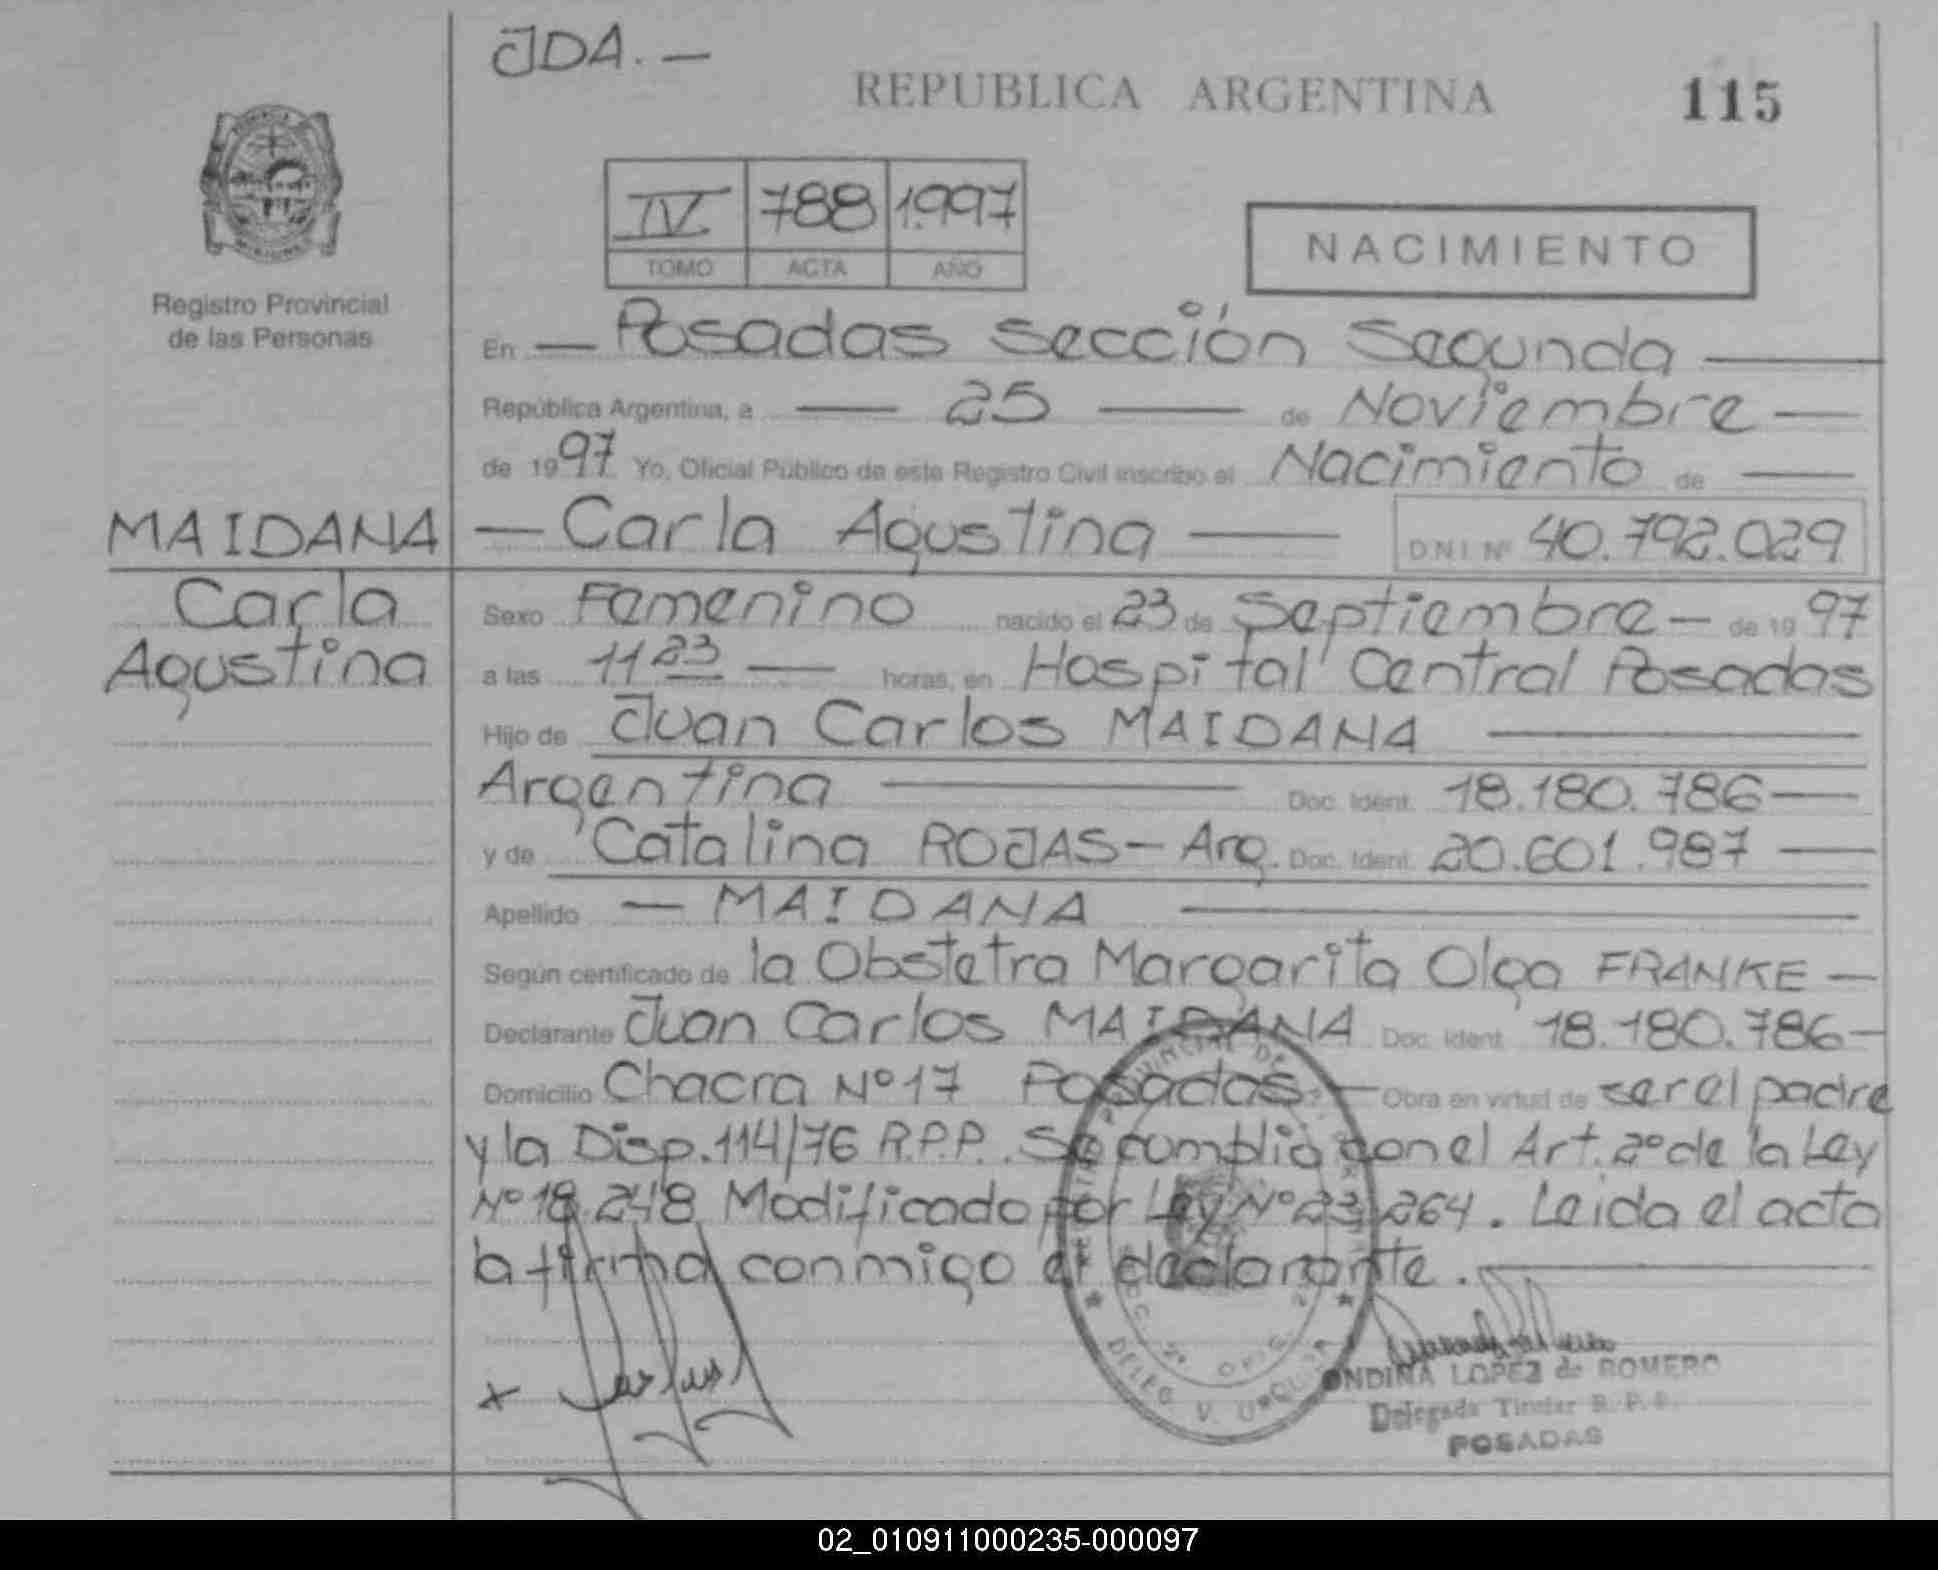 JDA.—
REPUBLICA ARGENTINA 115
IV 788 1.997
TOMO ACTA AÑO
NACIMIENTO
Registro Provincial
de las Personas
En — Posadas Sección Segunda —
República Argentina, a — 25 — de Noviembre —
de 1997 Yo, Oficial Público de este Registro Civil inscribo el Nacimiento de —
MAIDANA — Carla Agustina — D.N.I. Nº 40.792.029
Carla
Agustina
Sexo Femenino nacido el 23 de Septiembre — de 1997
a las 11 23 — horas, en Hospital Central Posadas
Hijo de Juan Carlos MAIDANA —
Argentina — Doc. Ident. 18.180.786 —
y de Catalina ROJAS — Arg. Doc. Ident. 20.601.987 —
Apellido — MAIDANA —
Según certificado de la Obstetra Margarita Olga FRANKE —
Declarante Juan Carlos MAIDANA Doc. Ident. 18.180.786 —
Domicilio Chacra Nº 17 Posadas — Obra en virtud de ser el padre
y la Disp. 114/76 R.P.P. Se cumplió con el Art. 2º de la Ley
Nº 18.248 Modificado por Ley Nº 23.264. Leida el acta
la firma conmigo el declarante. —
PROVINCIAL DE
DELEG V. URQUIZA
ONDINA LOPEZ de ROMERO
Delegada Titular R. P. P.
POSADAS
02_010911000235-000097